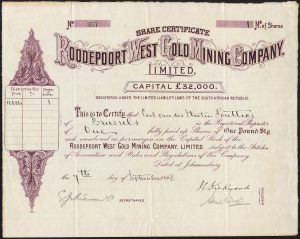 No 357 1 No of Shares
SHARE CERTIFICATE
ROODEPOORT WEST GOLD MINING COMPANY,
LIMITED.
CAPITAL £32,000.
REGISTERED UNDER THE LIMITED LIABILITY LAWS OF THE SOUTH AFRICAN REPUBLIC.
This is to Certify that
of Brussels is the Registered Proprietor
of One fully paid up Shares of One Pound Stg
each numbered as per margin in the Capital Stock of the
ROODEPOORT WEST GOLD MINING COMPANY, LIMITED, subject to the Articles
of Association and Rules and Regulations of the Company.
Dated at Johannesburg
this 7th day of September
SECRETARIES